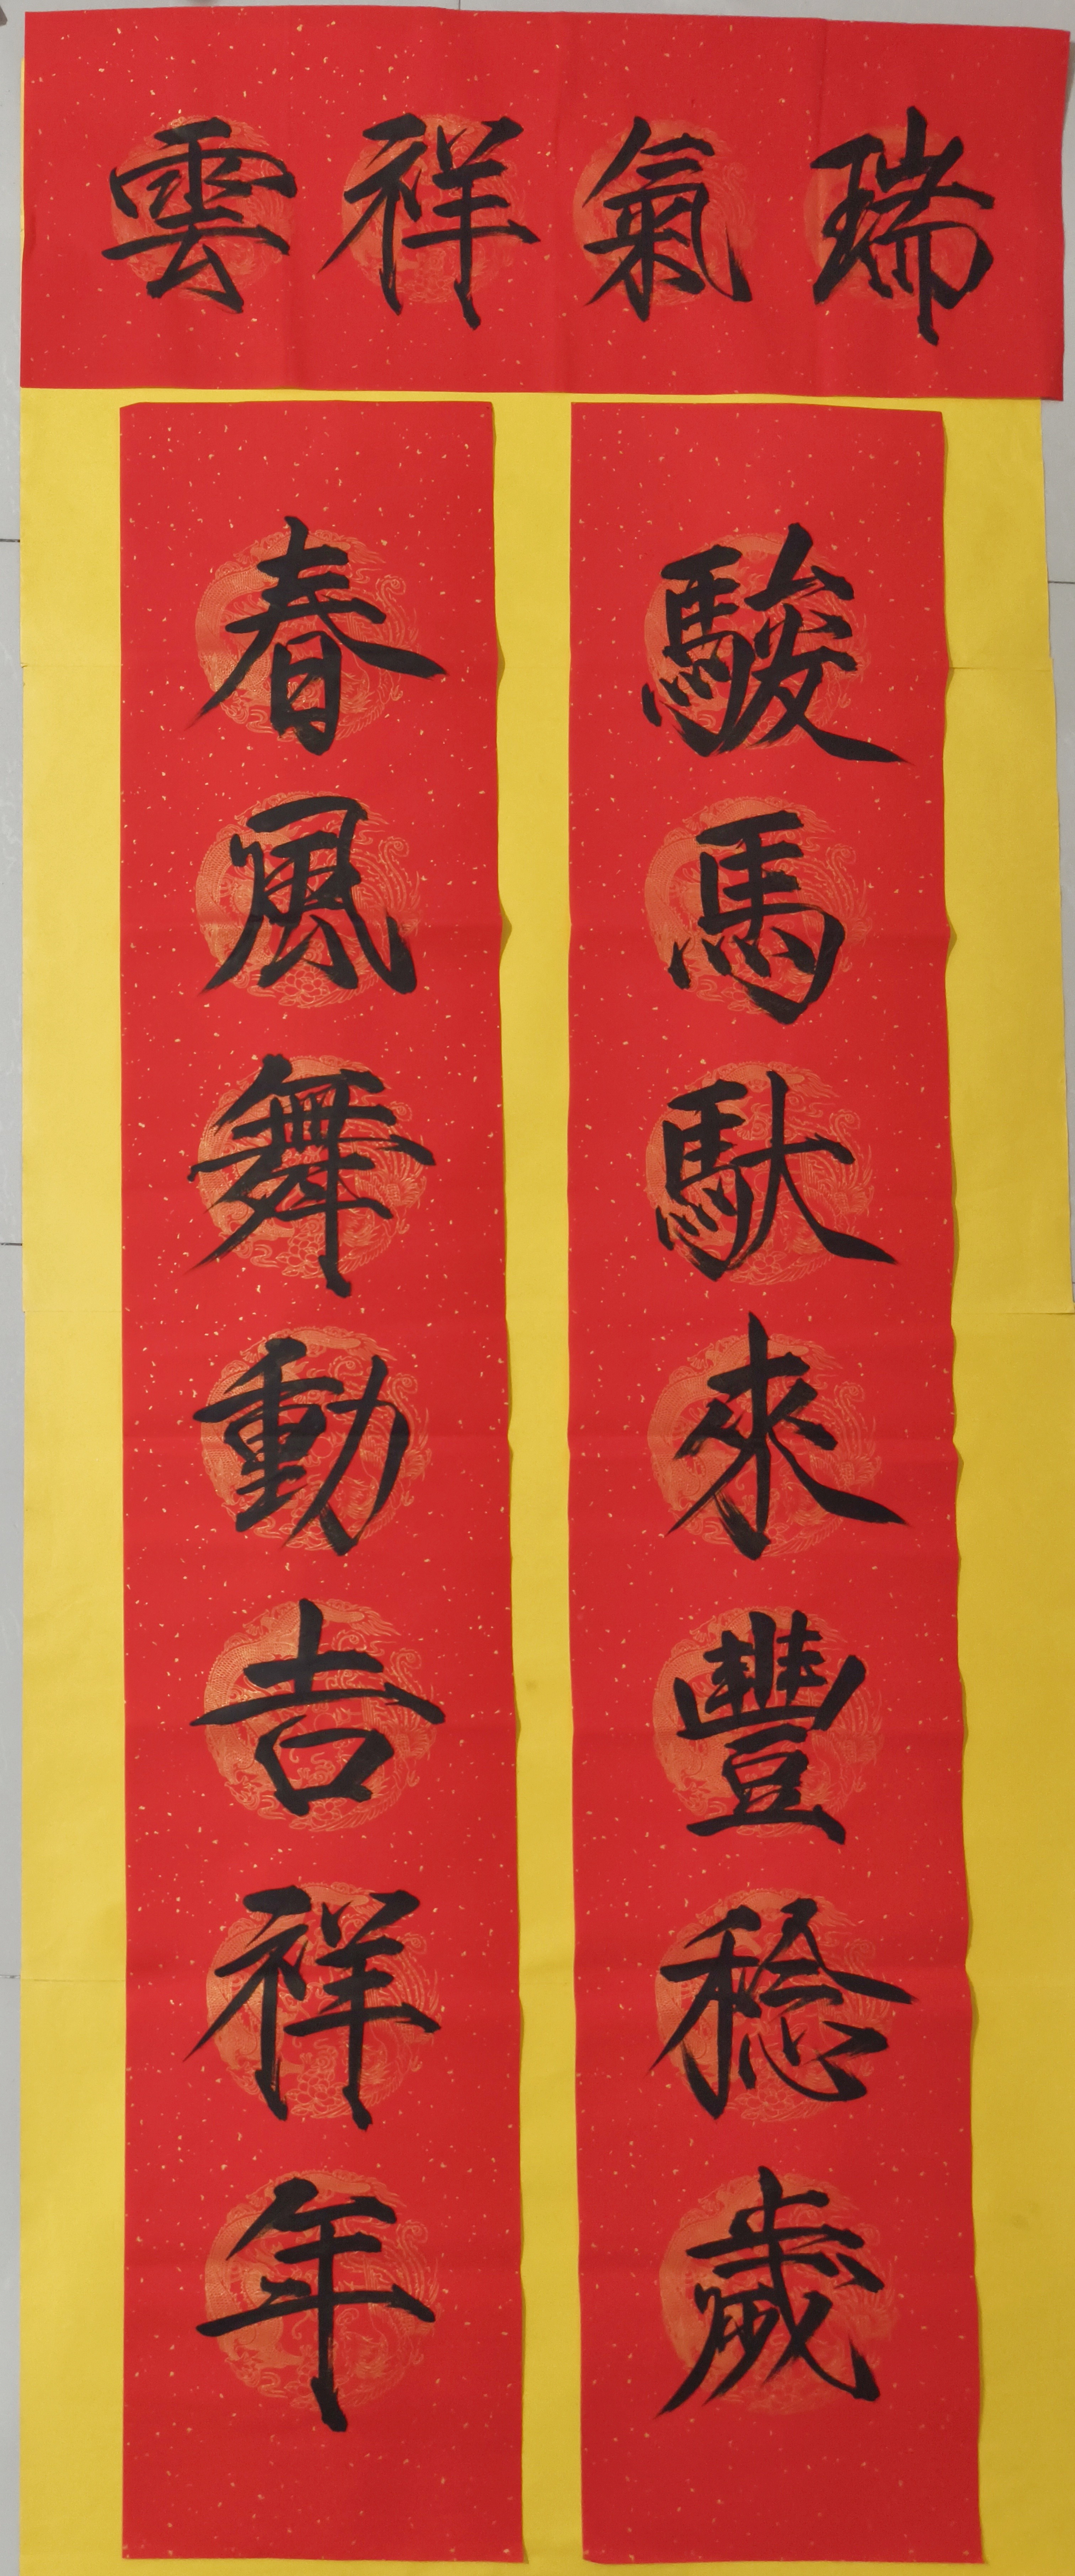 瑞氣祥雲
駿馬馱來豐稔歲
春風舞動吉祥年